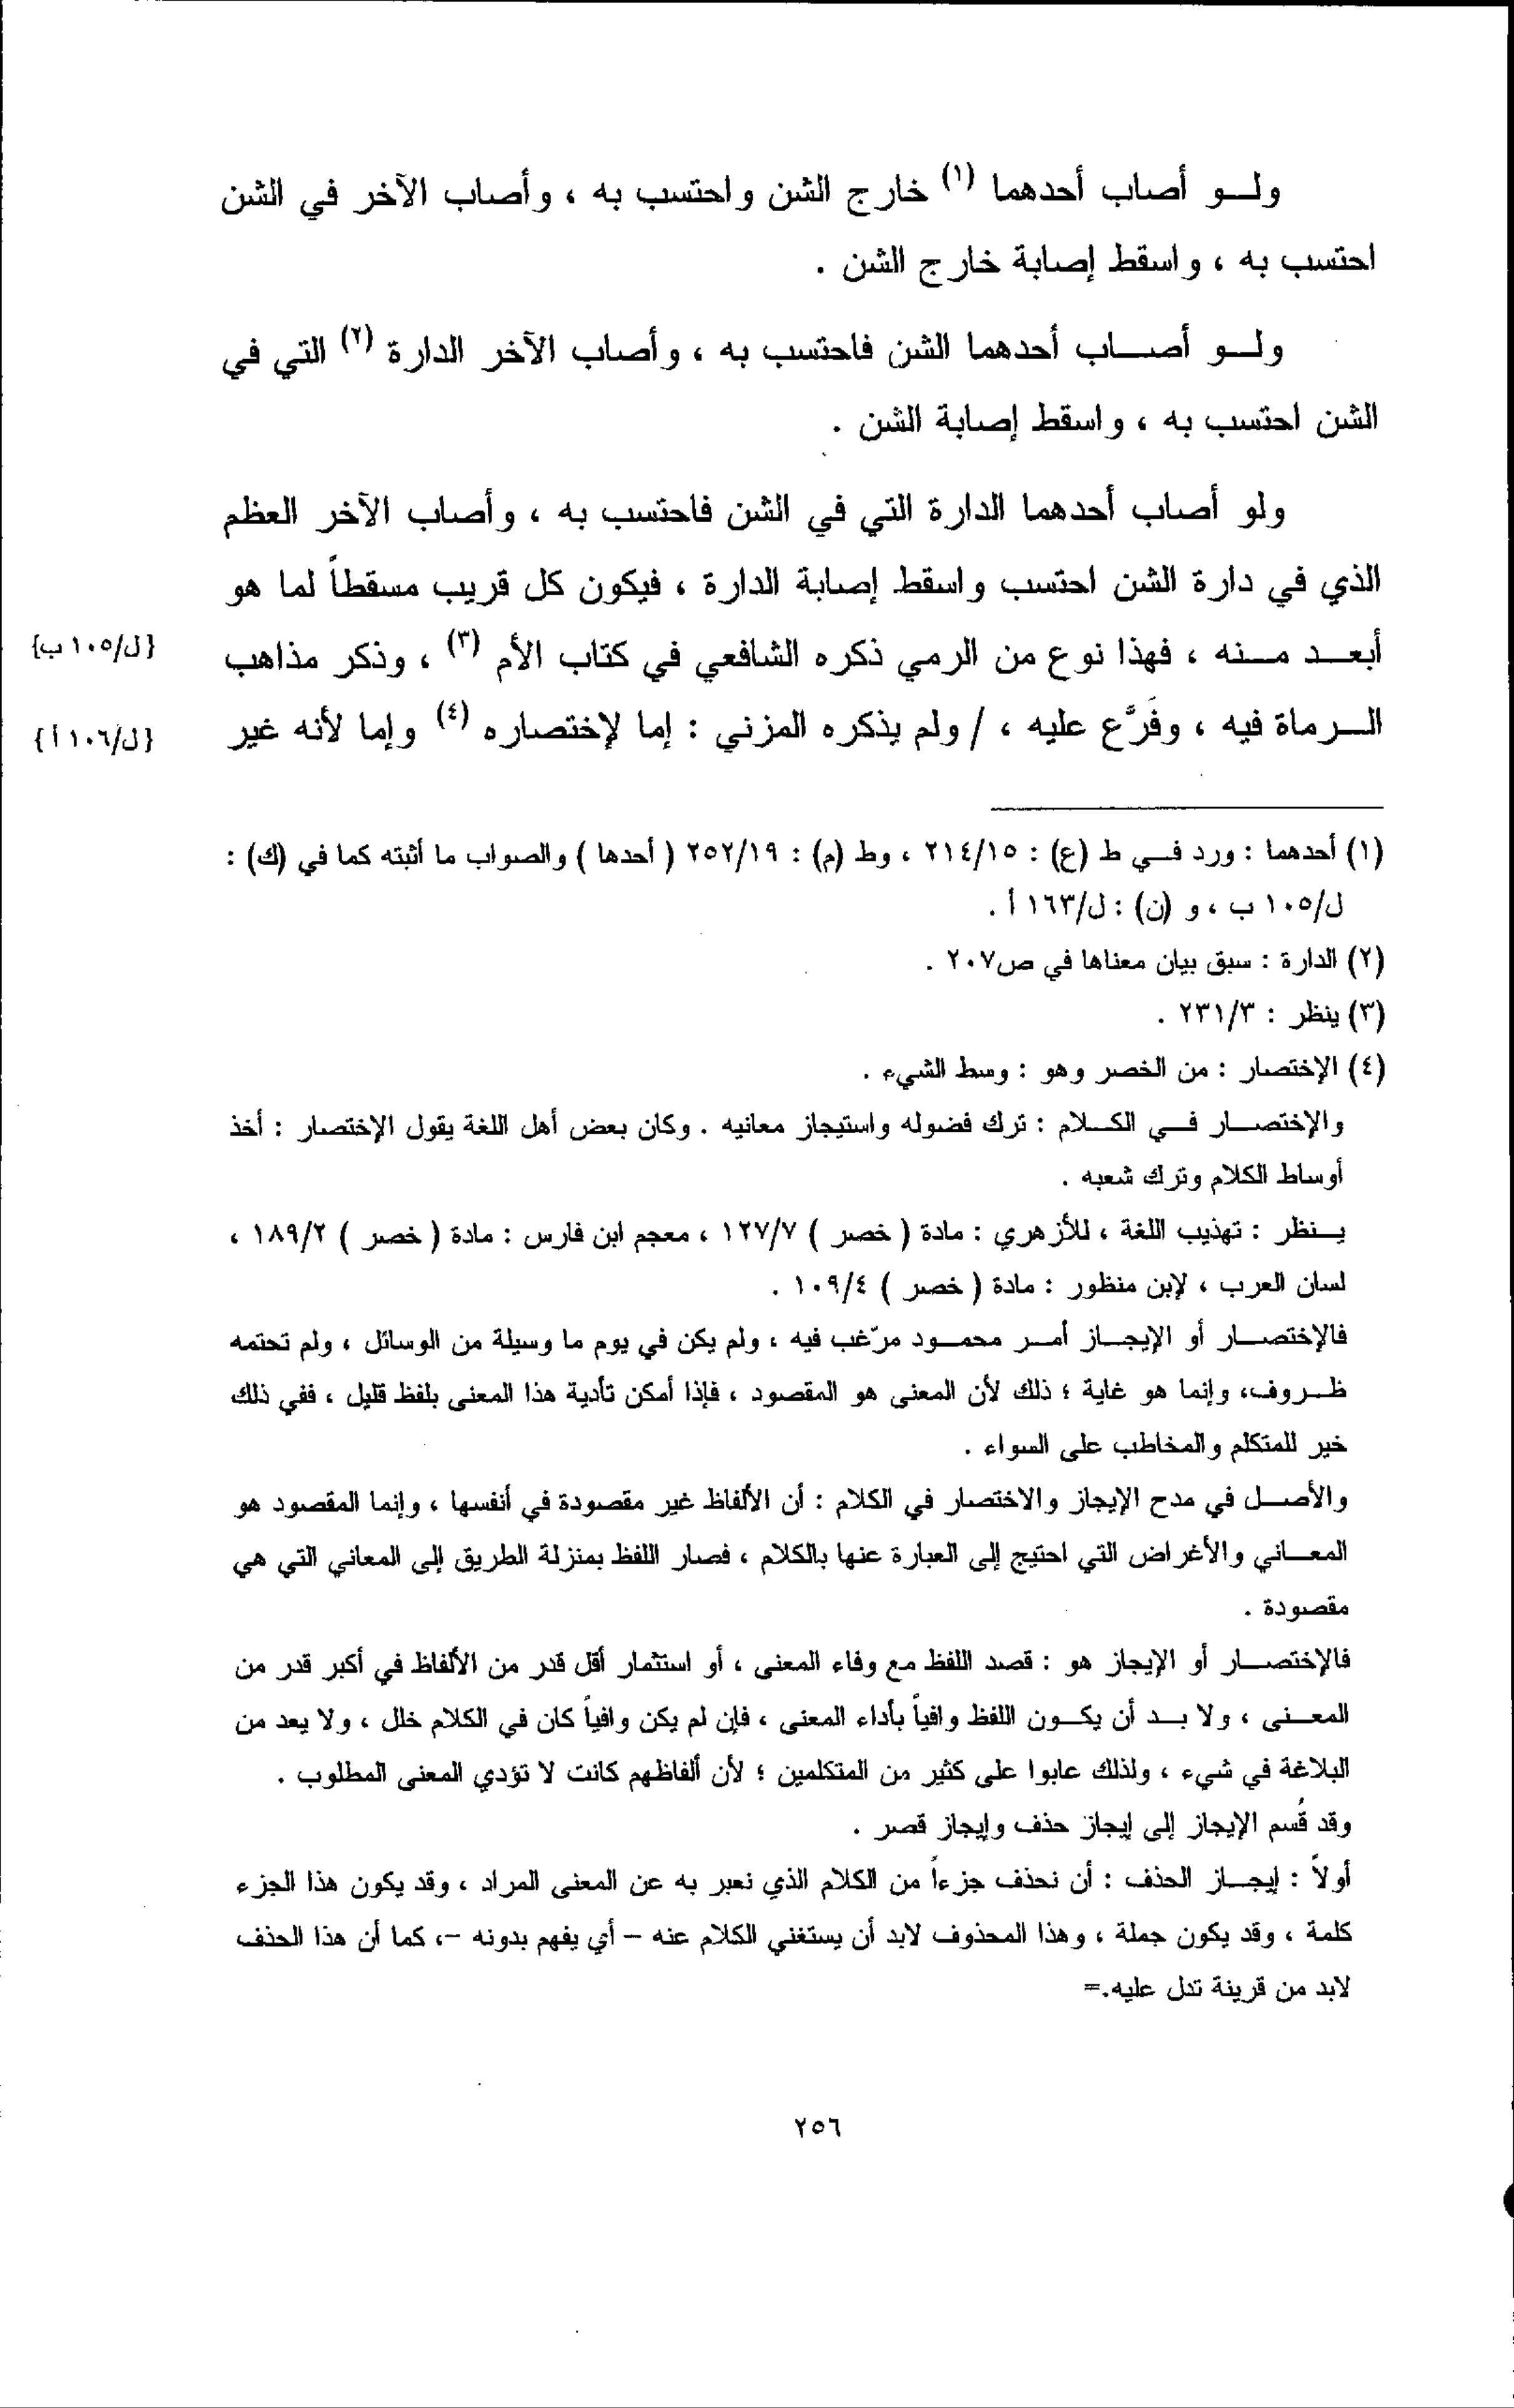 ولو أصاب أحدهما (١) خارج الشن واحتسب به ، وأصاب الآخر في الشن
احتسب به ، واسقط إصابة خارج الشن .
ولو أصاب أحدهما الشن فاحتسب به ، وأصاب الآخر الدارة (٢) التي في
الشن احتسب به ، واسقط إصابة الشن .
ولو أصاب أحدهما الدارة التي في الشن فاحتسب به ، وأصاب الآخر العظم
الذي في دارة الشن احتسب واسقط إصابة الدارة ، فيكون كل قريب مسقطاً لما هو
أبعد منه ، فهذا نوع من الرمي ذكره الشافعي في كتاب الأم (٣) ، وذكر مذاهب
{ل/١٠٥ ب}
الرماة فيه ، وفَرَّع عليه ، / ولم يذكره المزني : إما لإختصاره (٤) وإما لأنه غير
{ل/١٠٦ أ}
(١) أحدهما : ورد في ط (ع) : ٢١٤/١٥ ، وط (م) : ٢٥٢/١٩ ( أحدها ) والصواب ما أثبته كما في (ك) :
ل/١٠٥ ب ، و (ن) : ل/١٦٣ أ .
(٢) الدارة : سبق بيان معناها في ص٢٠٧ .
(٣) ينظر : ٢٣١/٣ .
(٤) الإختصار : من الخصر وهو : وسط الشيء .
والإختصار في الكلام : ترك فضوله واستيجاز معانيه . وكان بعض أهل اللغة يقول الإختصار : أخذ
أوساط الكلام وترك شعبه .
ينظر : تهذيب اللغة ، للأزهري : مادة ( خصر ) ١٢٧/٧ ، معجم ابن فارس : مادة ( خصر ) ١٨٩/٢ ،
لسان العرب ، لإبن منظور : مادة ( خصر ) ١٠٩/٤ .
فالإختصار أو الإيجاز أمر محمود مرّغب فيه ، ولم يكن في يوم ما وسيلة من الوسائل ، ولم تحتمه
ظروف، وإنما هو غاية ؛ ذلك لأن المعنى هو المقصود ، فإذا أمكن تأدية هذا المعنى بلفظ قليل ، ففي ذلك
خير للمتكلم والمخاطب على السواء .
والأصل في مدح الإيجاز والاختصار في الكلام : أن الألفاظ غير مقصودة في أنفسها ، وإنما المقصود هو
المعاني والأغراض التي احتيج إلى العبارة عنها بالكلام ، فصار اللفظ بمنزلة الطريق إلى المعاني التي هي
مقصودة .
فالإختصار أو الإيجاز هو : قصد اللفظ مع وفاء المعنى ، أو استثمار أقل قدر من الألفاظ في أكبر قدر من
المعنى ، ولا بد أن يكون اللفظ وافياً بأداء المعنى ، فإن لم يكن وافياً كان في الكلام خلل ، ولا يعد من
البلاغة في شيء ، ولذلك عابوا على كثير من المتكلمين ؛ لأن ألفاظهم كانت لا تؤدي المعنى المطلوب .
وقد قُسم الإيجاز إلى إيجاز حذف وإيجاز قصر .
أولاً : إيجاز الحذف : أن نحذف جزءاً من الكلام الذي نعبر به عن المعنى المراد ، وقد يكون هذا الجزء
كلمة ، وقد يكون جملة ، وهذا المحذوف لابد أن يستغني الكلام عنه - أي يفهم بدونه -، كما أن هذا الحذف
لابد من قرينة تدل عليه.=
٢٥٦